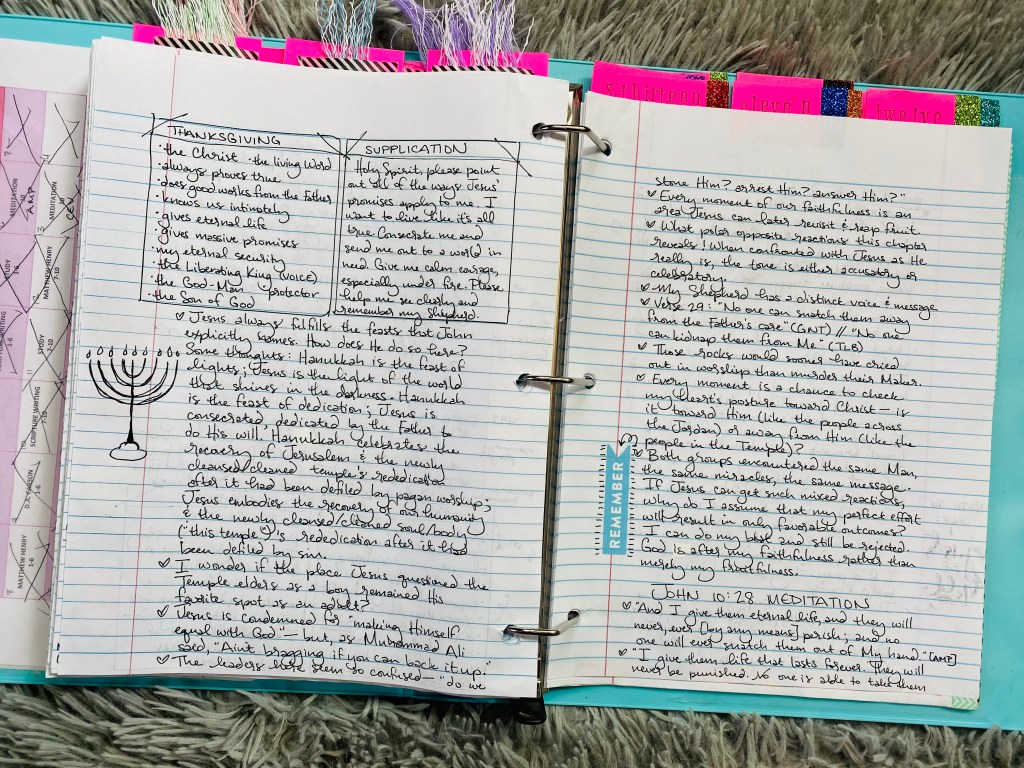 THANKSGIVING
· the Christ · the living Word
· always proves true
· does good works from the Father
· knows us intimately
· gives eternal life
· gives massive promises
· my eternal security
· the Liberating King (VOICE)
· the God-Man · protector
· the Son of God
SUPPLICATION
Holy Spirit, please point
out all of the ways Jesus'
promises apply to me. I
want to live like it's all
true. Consecrate me and
send me out to a world in
need. Give me calm courage,
especially under fire. Please
help me see clearly and
remember my Shepherd.
♡ Jesus always fulfills the feasts that John
explicitly names. How does He do so here?
Some thoughts: Hanukkah is the feast of
lights; Jesus is the light of the world
that shines in the darkness. Hanukkah
is the feast of dedication; Jesus is
consecrated, dedicated by the Father to
do His will. Hanukkah celebrates the
recovery of Jerusalem & the newly
cleansed/cleaned temple's rededication
after it had been defiled by pagan worship;
Jesus embodies the recovery of our humanity
& the newly cleansed/cleaned soul/body
("this temple")'s rededication after it had
been defiled by sin.
♡ I wonder if the place Jesus questioned the
Temple elders as a boy remained His
favorite spot as an adult?
♡ Jesus is condemned for "making Himself
equal with God" — but, as Muhammad Ali
said, "Ain't bragging if you can back it up."
♡ The leaders here seem so confused — "do we
s thirteen
eleven
twelve
stone Him? arrest Him? answer Him?"
♡ Every moment of our faithfulness is an
area Jesus can later revisit & reap fruit.
♡ What polar opposite reactions this chapter
reveals! When confronted with Jesus as He
really is, the tone is either accusatory or
celebratory.
♡ My Shepherd has a distinct voice & message
♡ Verse 29: "No one can snatch them away
from the Father's care" (GNT) // "No one
can kidnap them from Me" (TLB)
♡ Those rocks would sooner have cried
out in worship than murder their Maker.
♡ Every moment is a chance to check
my heart's posture toward Christ — is
it toward Him (like the people across
the Jordan) or away from Him (like the
people in the Temple)?
♡ Both groups encountered the same Man,
the same miracles, the same message.
If Jesus can get such mixed reactions,
why do I assume that my perfect effort
will result in only favorable outcomes?
I can do my best and still be rejected.
God is after my faithfulness rather than
merely my fruitfulness.
REMEMBER
JOHN 10:28 MEDITATIONS
♡ "And I give them eternal life, and they will
never, ever [by any means] perish; and no
one will ever snatch them out of My hand." [AMP]
♡ "I give them life that lasts forever. They will
never be punished. No one is able to take them
MEDITATION
AMP
MEDITATION
CEV
STUDY
MATTHEW HENRY
7-10
STUDY
7-10
SCRIPTURE WRITING
7-10
D.A. CARSON
1-6
MATTHEW HENRY
1-6